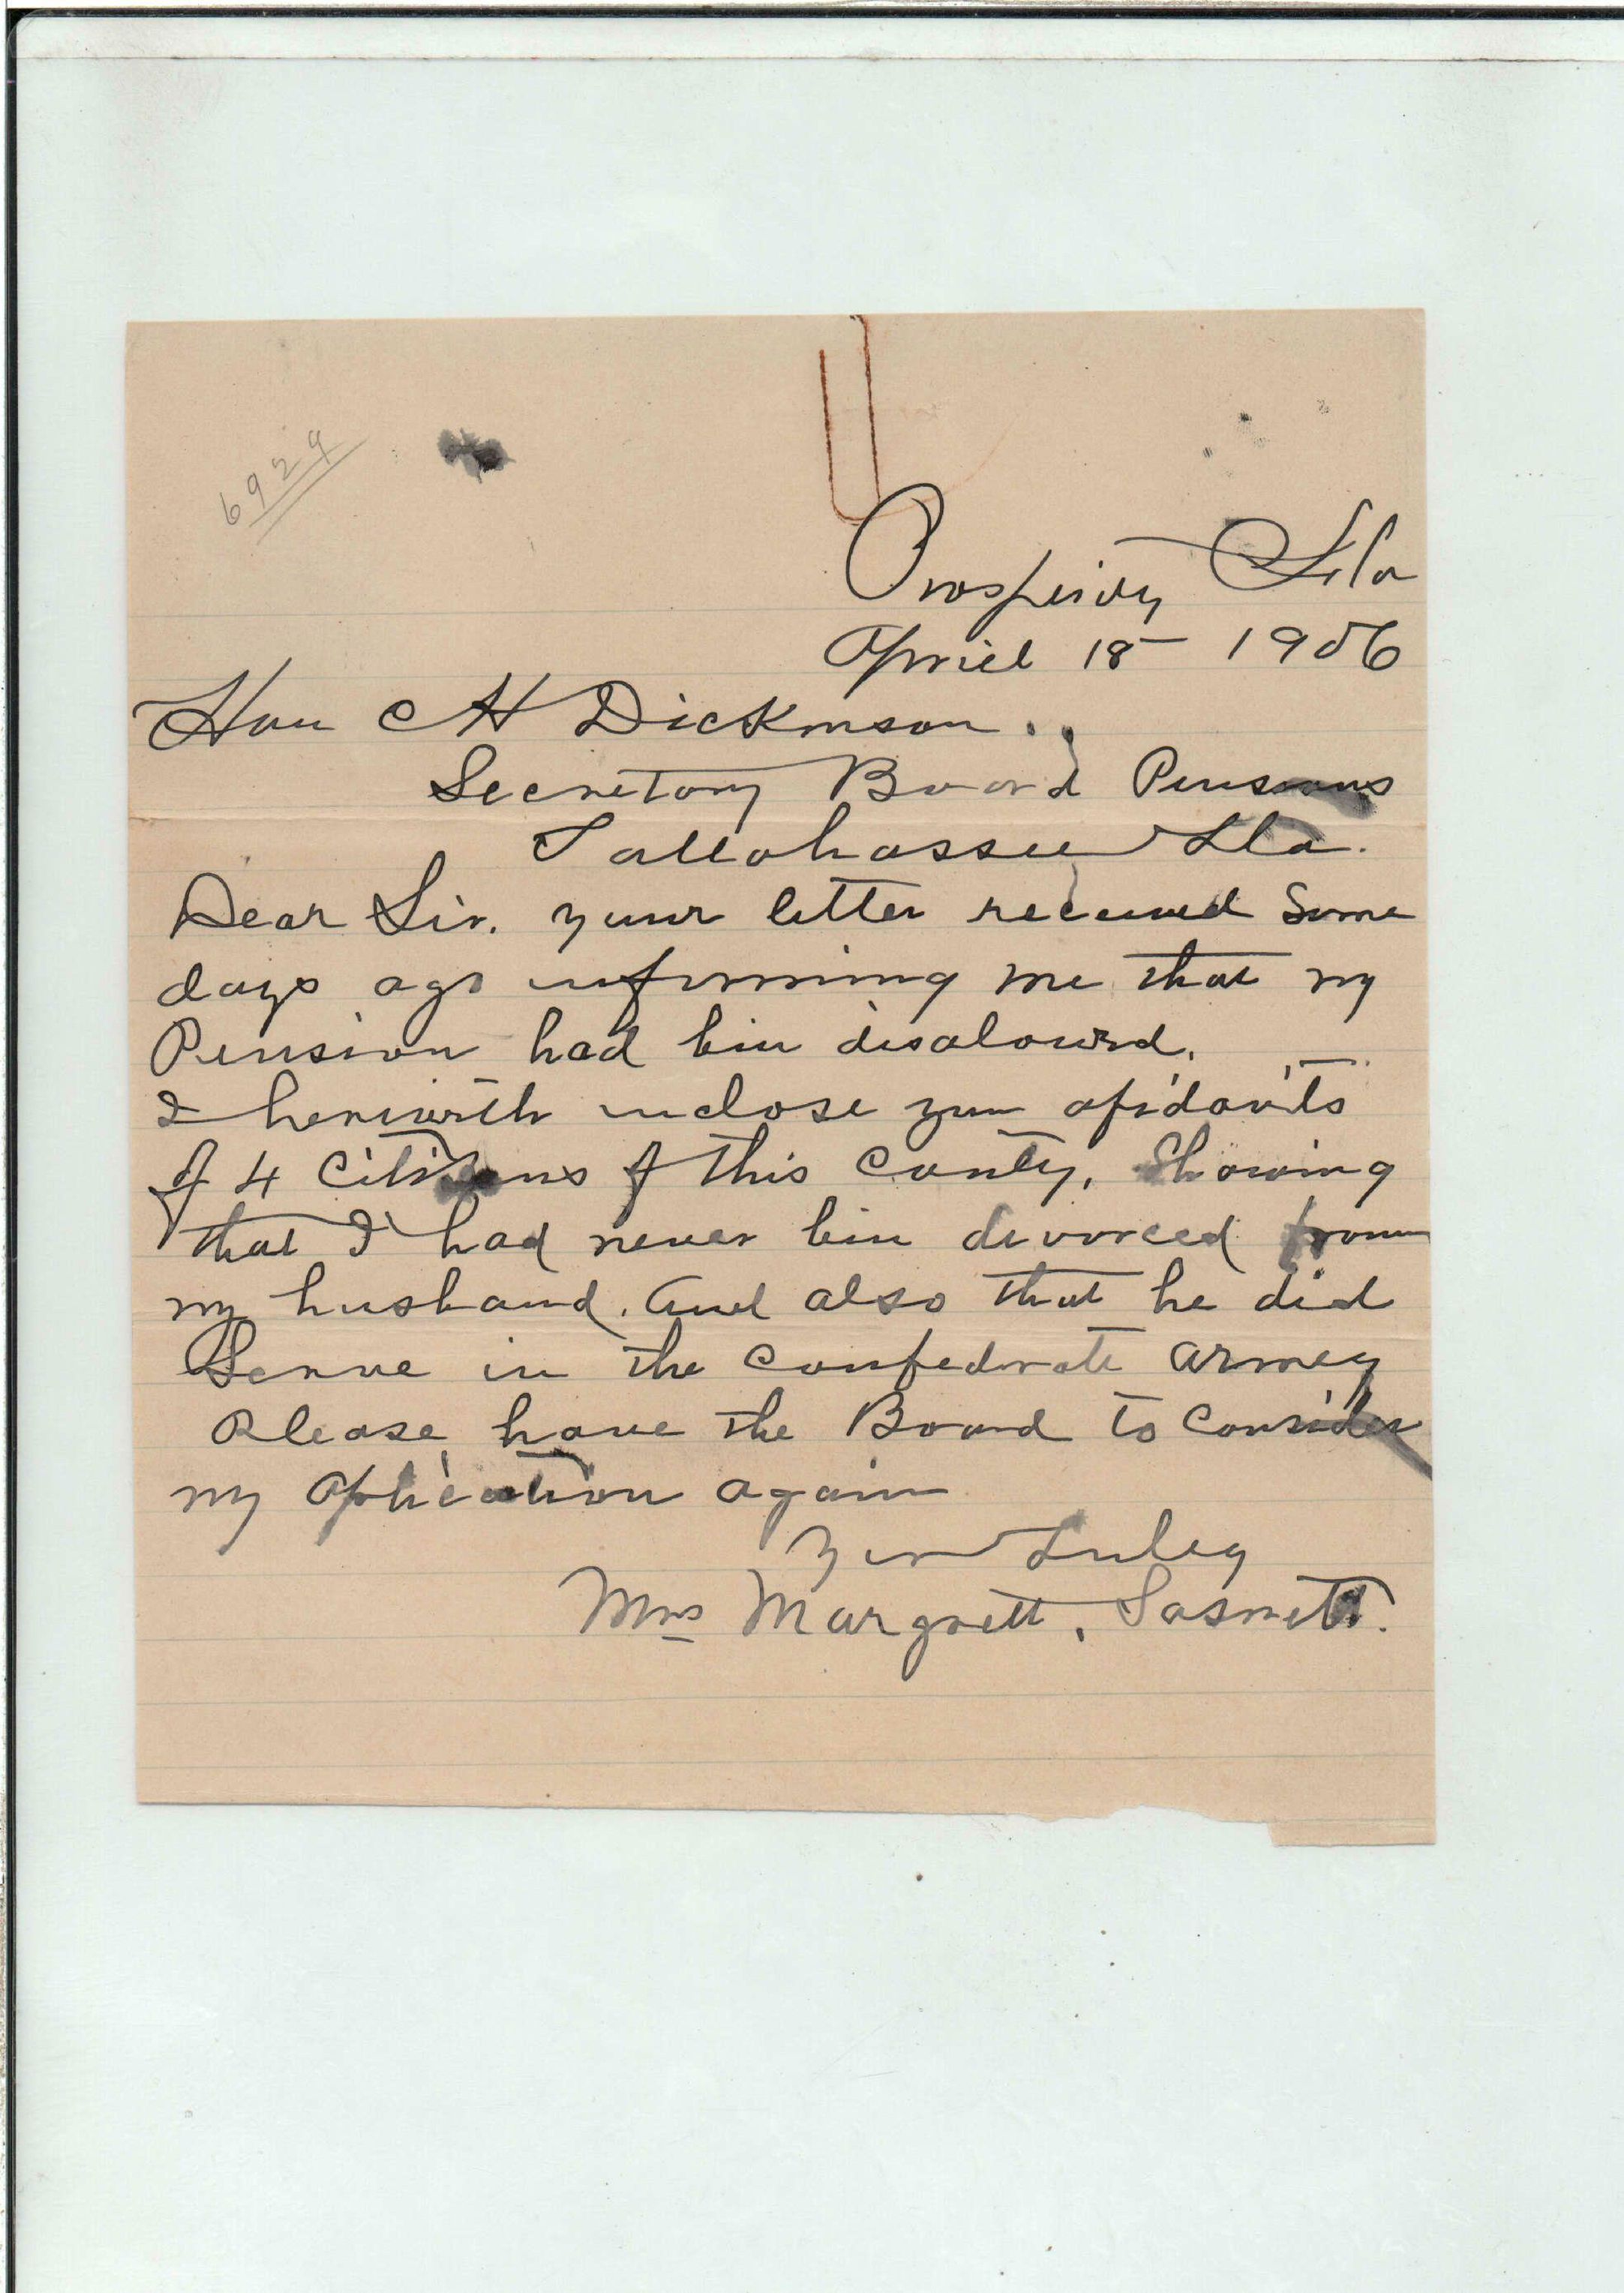 6929
Prosperity Fla
Apriel 18 - 1906
Hon C H Dickinson.
Secretary Board Pensions
Tallahassee Fla.
Dear Sir. your letter received Some
days ago informing me that my
Pension had bin disalowed.
I herewith inclose you afidavits
of 4 Citizens of this County, Showing
that I had never bin divorced from
my husband. and also that he did
Serve in the Confederate armey
Please have the Board to Consider
my Aplication again
Your Truley
Mrs Margrett. Sasnett.